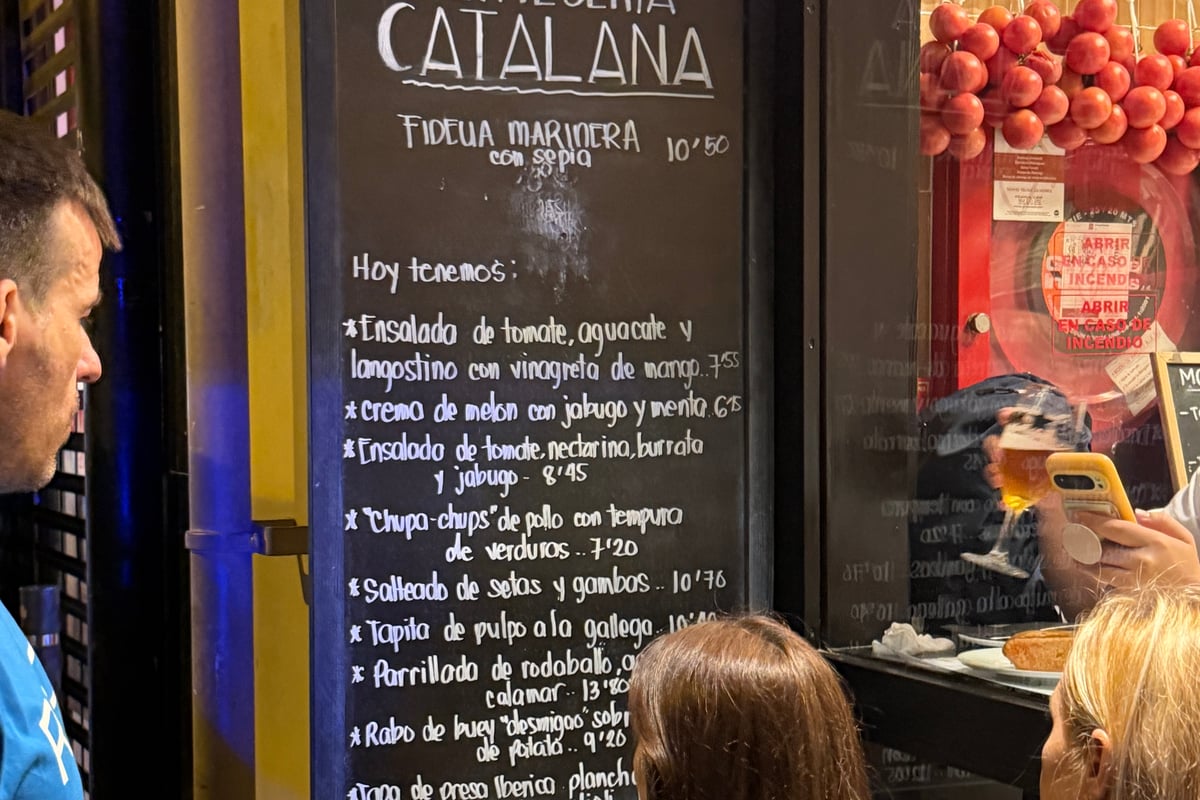 CATALANA
FIDEUA MARINERA 10'50
con sepia
Hoy tenemos:
*Ensalada de tomate, aguacate y
langostino con vinagreta de mango..7'55
*crema de melon con jabugo y menta.6'15
*Ensalada de tomate, nectarina, burrata
y jabugo- 8'45
*"Chupa-chups" de pollo con tempura
de verduras..7'20
*Salteado de setas y gambas.. 10'76
*Tapita de pulpo a la gallega..
*Parrillada de rodaballo,
calamar.. 13'80
*Rabo de buey "desmigao" sobr
de patata.. 9'20
*Tapa de presa Iberica plancha
ABRIR
EN CASO DE
INCENDIO
ABRIR
EN CASO DE
INCENDIO